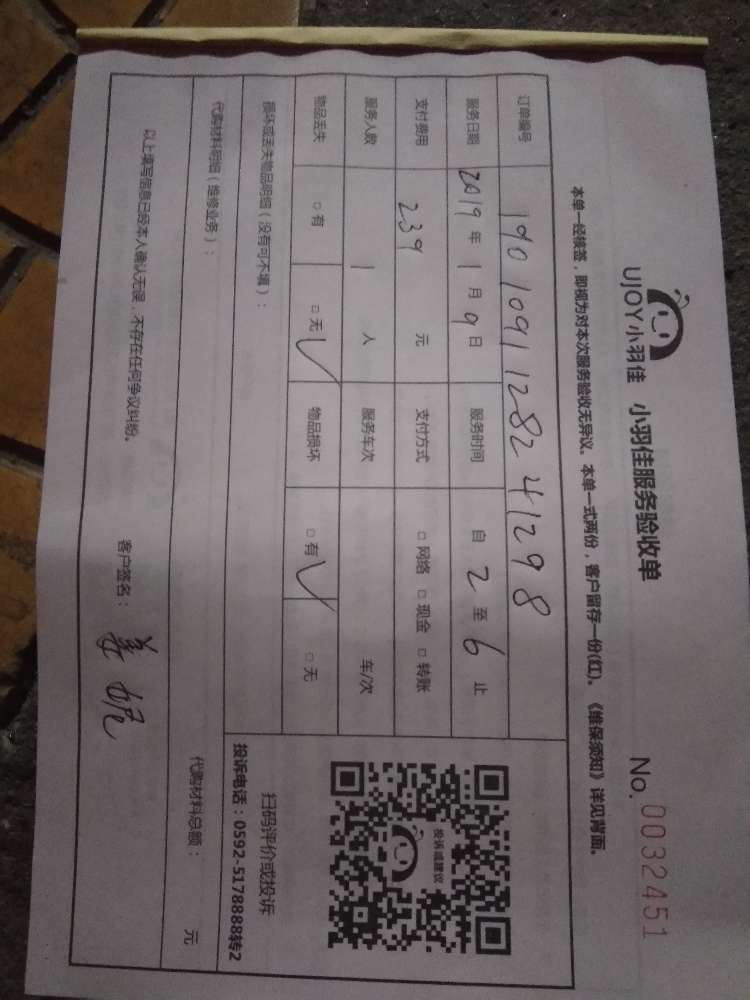 UJOY小羽佳 小羽佳服务验收单 No. 0032451
本单一经核签，即视为对本次服务验收无异议。本单一式两份，客户留存一份(红)。《维保须知》详见背面。
订单编号 1901091128241298
服务日期 2019年1月9日 服务时间 自2至6止
支付费用 239元 支付方式 □网络 □现金 □转账
服务人数 1人 服务车次 车/次
物品丢失 □有 □无√ 物品损坏 □有√ □无
损坏或丢失物品明细（没有可不填）：
代购材料明细（维修业务）： 代购材料总额： 元
投诉或建议
扫码评价或投诉
投诉电话：0592-5178888转2
以上填写信息已经本人确认无误，不存在任何争议纠纷。
客户签名：姜妮